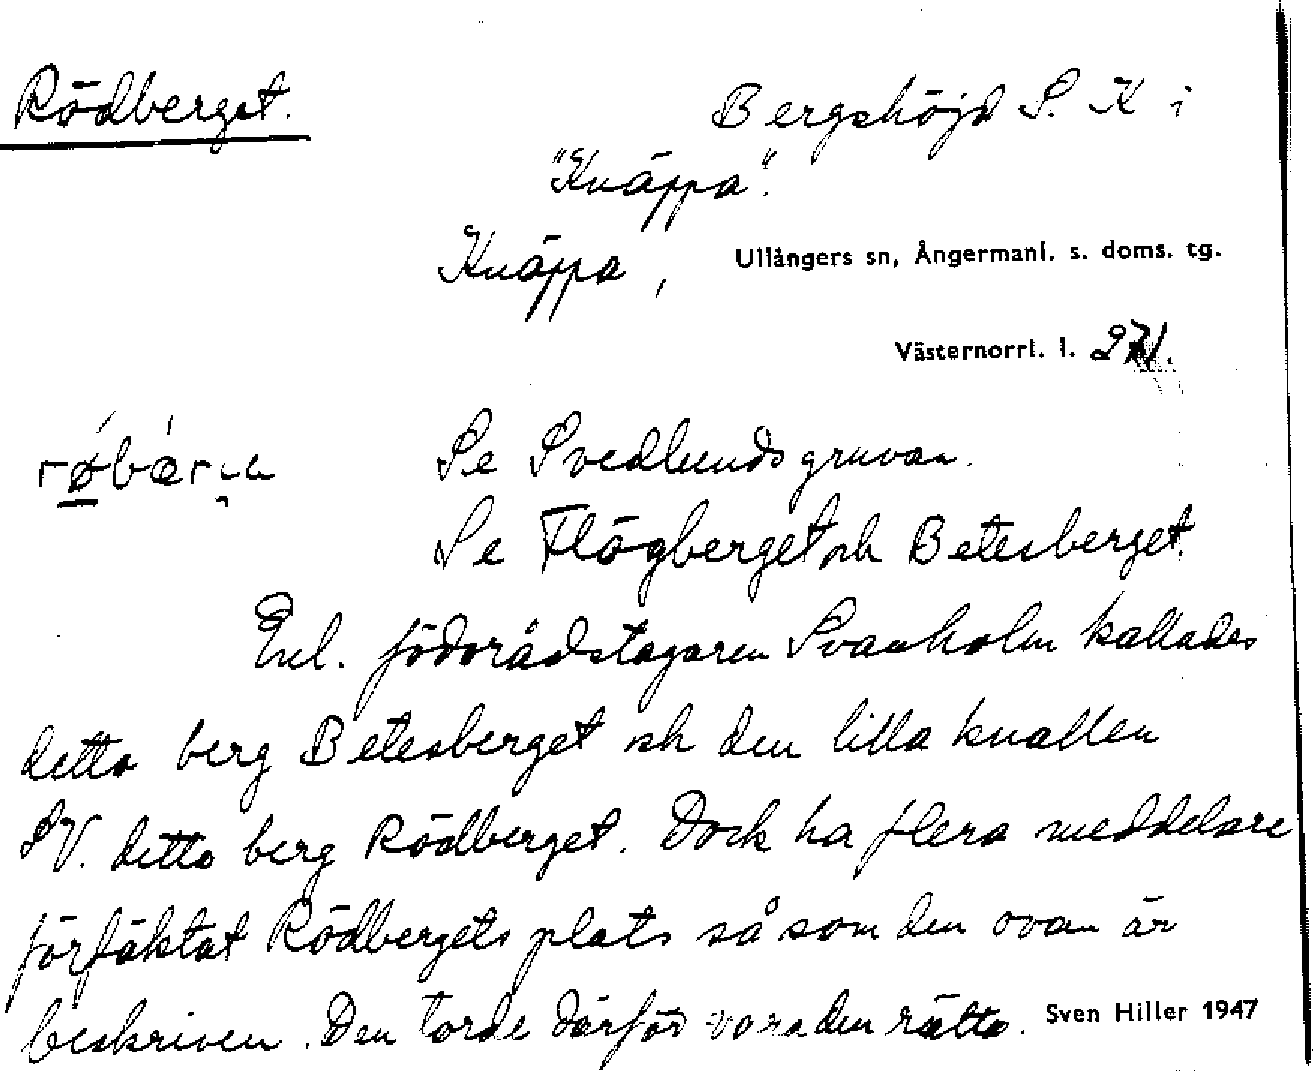 Rödberget.
Bergshöjd S. K i
"Knäppa".
Knäppa, Ullångers sn, Ångermanl. s. doms. tg.
Västernorrl. l. 271.
Se Svedlundsgruvan.
Se Flögberget och Betesberget.
Enl. födorådstagaren Svanholm kallades
detta berg Betesberget och den lilla knallen
SV. detta berg Rödberget. Dock ha flera meddelare
förfäktat Rödbergets plats så som den ovan är
beskriven. Den torde därför vara den rätta. Sven Hiller 1947